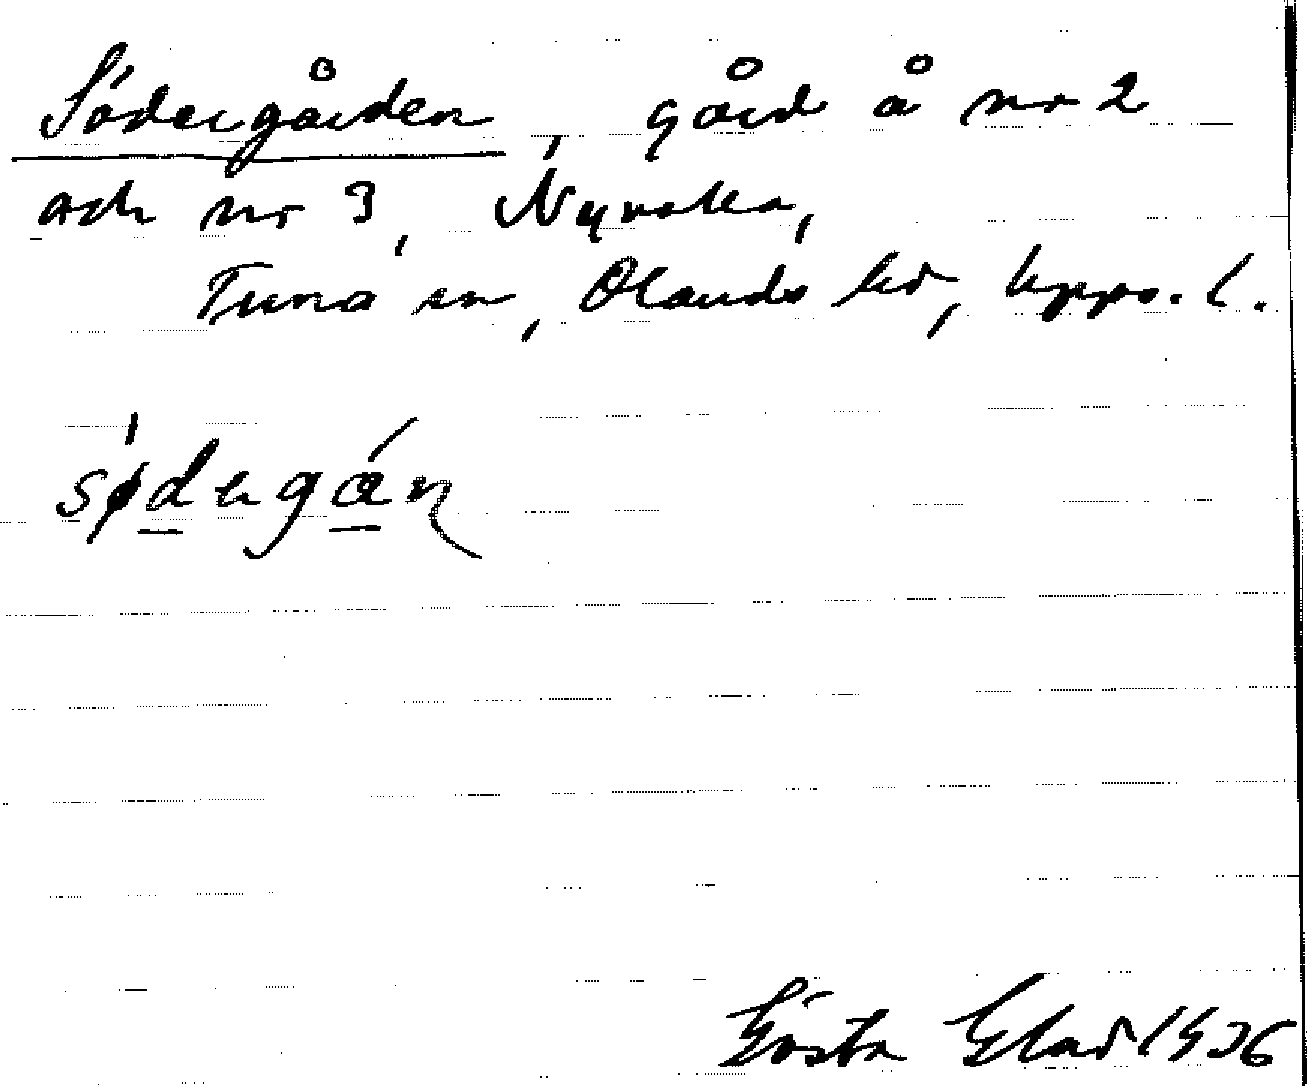 Södergården, gård å nr 2
och nr 3, Nyvalla,
Tuna sn, Olands hd, Upps. l.
sødeṛgån
Gösta Elad 1936